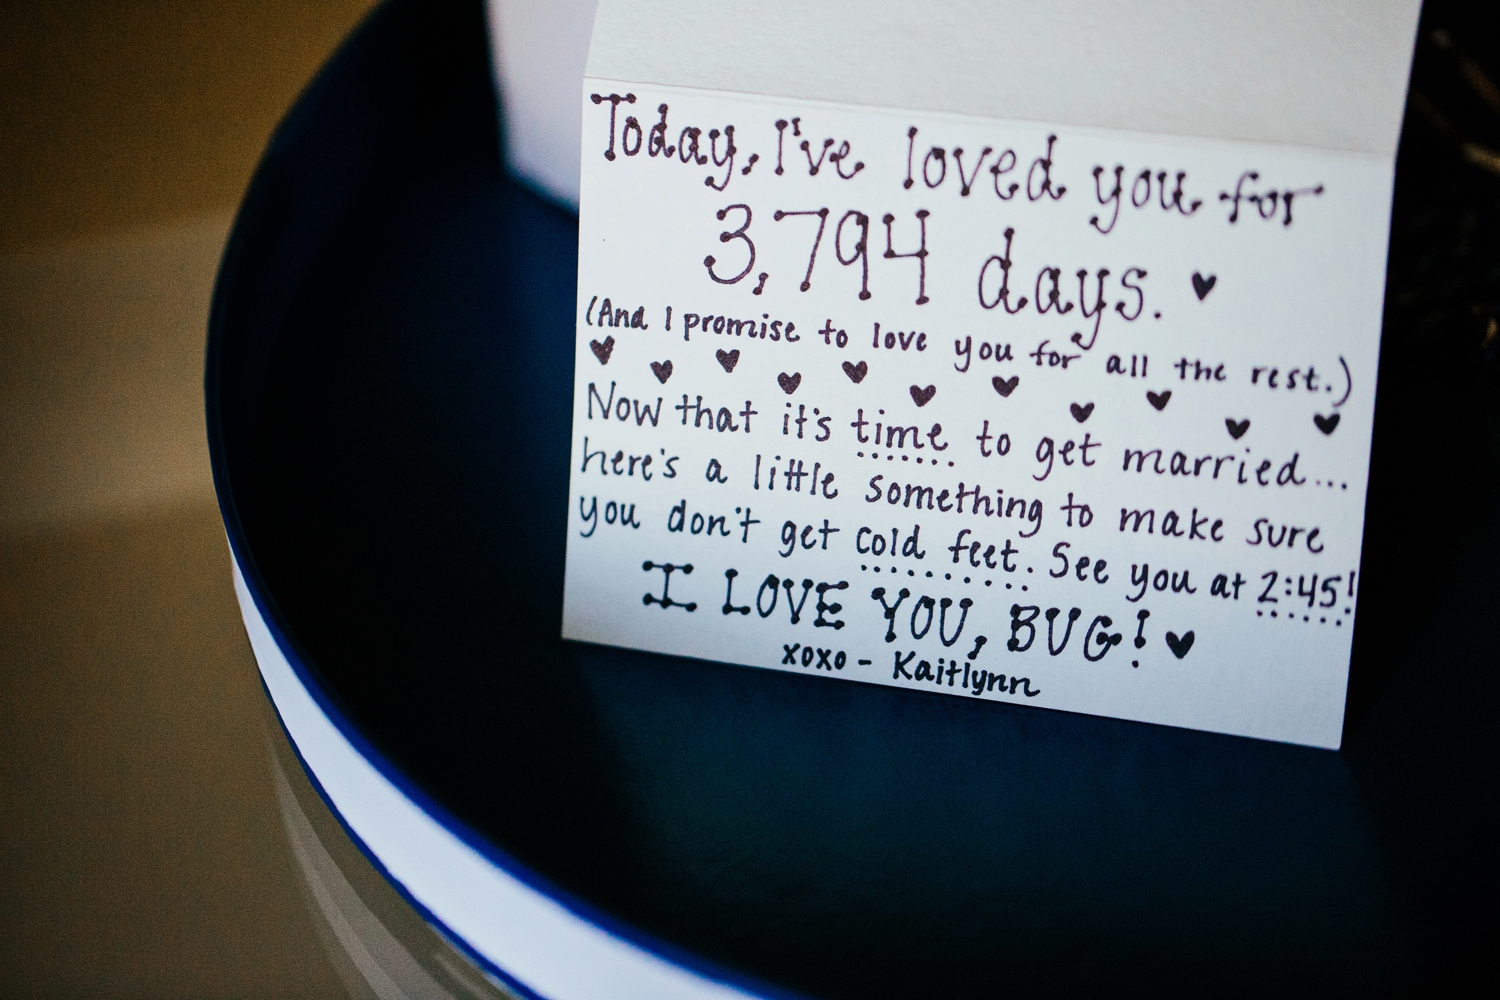 Today, I've loved you for
3,794 days. ♥
(And I promise to love you for all the rest.)
♥ ♥ ♥ ♥ ♥ ♥ ♥ ♥ ♥ ♥ ♥
Now that it's time to get married...
here's a little something to make sure
you don't get cold feet. See you at 2:45!
I LOVE YOU, BUG! ♥
xoxo - Kaitlynn